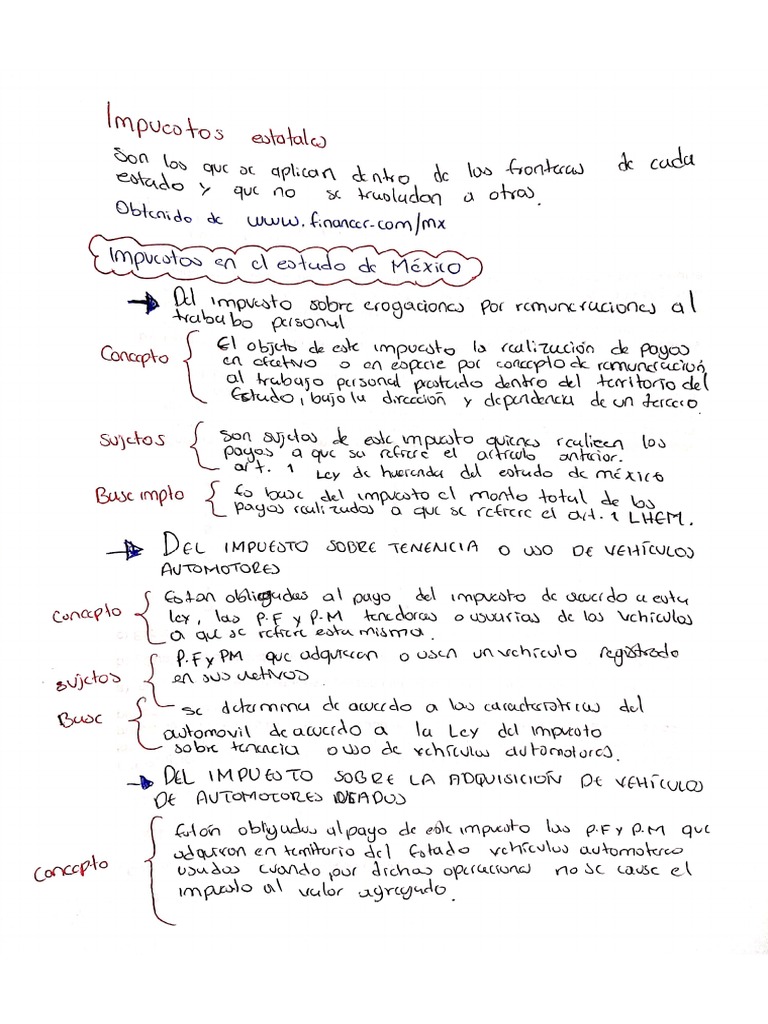 Impuestos estatales
Son los que se aplican dentro de las fronteras de cada
estado y que no se trasladan a otras.
Obtenido de www.financer.com/mx
Impuestos en el estado de México
Del impuesto sobre erogaciones por remuneraciones al
trabajo personal
Concepto
El objeto de este impuesto la realización de pagos
en efectivo o en especie por concepto de remuneración
al trabajo personal prestado dentro del territorio del
Estado, bajo la dirección y dependencia de un tercero.
Sujetos
Son sujetos de este impuesto quienes realicen los
pagos a que su refiere el artículo anterior.
art. 1 Ley de hacienda del estado de méxico
Base impto
Es base del impuesto el monto total de los
pagos realizados a que se refiere el art. 1 LHEM.
DEL IMPUESTO SOBRE TENENCIA O USO DE VEHÍCULOS
AUTOMOTORES
Concepto
Estan obligadas al pago del impuesto de acuerdo a esta
ley, las P.F y P.M tenedoras o usuarias de los vehículos
a que se refiere esta misma.
Sujetos
P.F y PM que adquieran o usen un vehículo registrado
en sus activos.
Base
se determina de acuerdo a las características del
automovil de acuerdo a la Ley del impuesto
sobre tenencia o uso de vehículos automotores.
DEL IMPUESTO SOBRE LA ADQUISICIÓN DE VEHÍCULOS
DE AUTOMOTORES USADOS
Concepto
Están obligadas al pago de este impuesto las P.F y P.M que
adquieran en territorio del Estado vehículos automotores
usados cuando por dichas operaciones no se cause el
impuesto al valor agregado.